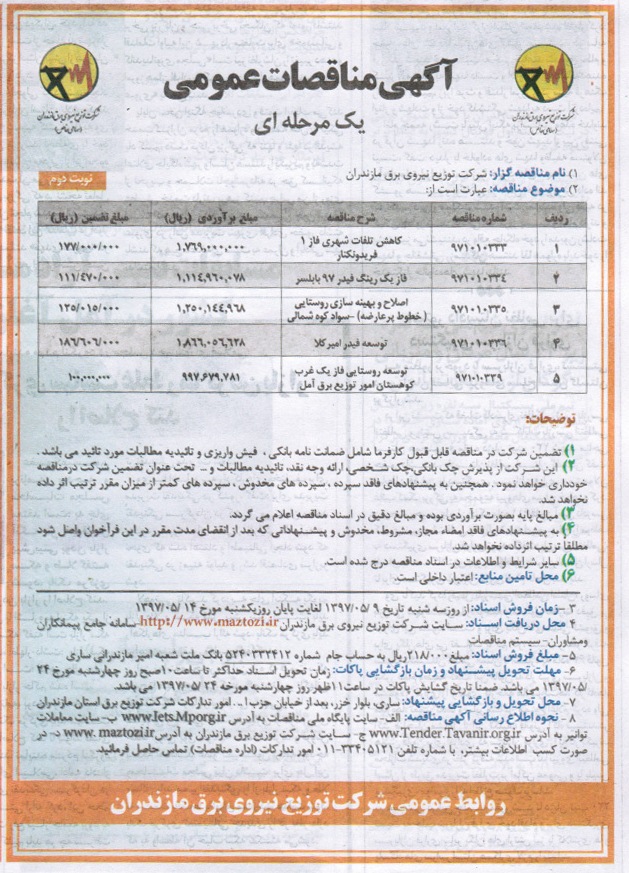 آگهی مناقصات عمومی
یک مرحله ای
شرکت توزیع نیروی برق مازندران
(سهامی خاص)
شرکت توزیع نیروی برق مازندران
(سهامی خاص)
نوبت دوم
۱) نام مناقصه گزار: شرکت توزیع نیروی برق مازندران
۲) موضوع مناقصه: عبارت است از:
ردیف شماره مناقصه شرح مناقصه مبلغ برآوردی (ریال) مبلغ تضمین (ریال)
۱ ۹۷۱۰۱۰۳۳۳ کاهش تلفات شهری فاز ۱ فریدونکنار ۱,۷۶۹,۰۰۰,۰۰۰ ۱۷۷/۰۰۰/۰۰۰
۲ ۹۷۱۰۱۰۳۳۴ فاز یک رینگ فیدر ۹۷ بابلسر ۱,۱۱۴,۹۶۰,۰۷۸ ۱۱۱/۴۷۰/۰۰۰
۳ ۹۷۱۰۱۰۳۳۵ اصلاح و بهینه سازی روستایی (خطوط پرعارضه) -سواد کوه شمالی ۱,۲۵۰,۱۴۴,۹۶۸ ۱۲۵/۰۱۵/۰۰۰
۴ ۹۷۱۰۱۰۳۳۶ توسعه فیدر امیرکلا ۱,۸۶۶,۰۵۶,۶۳۸ ۱۸۶/۶۰۶/۰۰۰
۵ ۹۷۱۰۱۰۳۳۹ توسعه روستایی فاز یک غرب کوهستان امور توزیع برق آمل ۹۹۷,۶۷۹,۷۸۱ ۱۰۰,۰۰۰,۰۰۰
توضیحات:
۱) تضمین شرکت در مناقصه قابل قبول کارفرما شامل ضمانت نامه بانکی ، فیش واریزی و تائیدیه مطالبات مورد تائید می باشد .
۲) این شرکت از پذیرش چک بانکی،چک شخصی، ارائه وجه نقد، تائیدیه مطالبات و ... تحت عنوان تضمین شرکت درمناقصه
خودداری خواهد نمود . همچنین به پیشنهادهای فاقد سپرده ، سپرده های مخدوش ، سپرده های کمتر از میزان مقرر ترتیب اثر داده
نخواهد شد.
۳) مبالغ پایه بصورت برآوردی بوده و مبالغ دقیق در اسناد مناقصه اعلام می گردد.
۴) به پیشنهادهای فاقد امضاء مجاز، مشروط، مخدوش و پیشنهاداتی که بعد از انقضای مدت مقرر در این فراخوان واصل شود
مطلقا ترتیب اثرداده نخواهد شد.
۵) سایر شرایط و اطلاعات در اسناد مناقصه درج شده است.
۶) محل تامین منابع: اعتبار داخلی است.
۳ -زمان فروش اسناد: از روزسه شنبه تاریخ ۹ /۱۳۹۷/۰۵ لغایت پایان روزیکشنبه مورخ ۱۴ /۱۳۹۷/۰۵
۴ -محل دریافت اسناد: سایت شرکت توزیع نیروی برق مازندران http://www.maztozi.ir-سامانه جامع پیمانکاران
ومشاوران- سیستم مناقصات
۵- مبلغ فروش اسناد: ۲۱۸۰۰۰ریال به حساب جام ۵۲۴۰۳۳۳۴۱۲ بانک ملت شعبه امیر مازندرانی ساری
۶- مهلت تحویل پیشنهاد و زمان بازگشایی پاکات: زمان تحویل اسناد حداکثر تا ساعت ۱۰صبح روز چهارشنبه مورخ ۲۴
/۱۳۹۷/۰۵ می باشد. ضمنا تاریخ گشایش پاکات در ساعت ۱۱ظهر روز چهارشنبه مورخه ۲۴ /۱۳۹۷/۰۵ می باشد.
۷- محل تحویل و بازگشایی پیشنهاد: ساری، بلوار خزر، بعد از خیابان حزب ا... . امور تدارکات شرکت توزیع برق استان مازندران
۸ - نحوه اطلاع رسانی آگهی مناقصه: الف- سایت پایگاه ملی مناقصات به آدرس www.Iets.Mporg.ir ب- سایت معاملات
توانیر به آدرس www.Tender.Tavanir.org.ir ج- سایت شرکت توزیع برق مازندران به آدرس www. maztozi.ir د- در
صورت کسب اطلاعات بیشتر، با شماره تلفن ۳۳۴۰۵۱۲۱-۰۱۱ امور تدارکات (اداره مناقصات) تماس حاصل فرمائید.
روابط عمومی شرکت توزیع نیروی برق مازندران